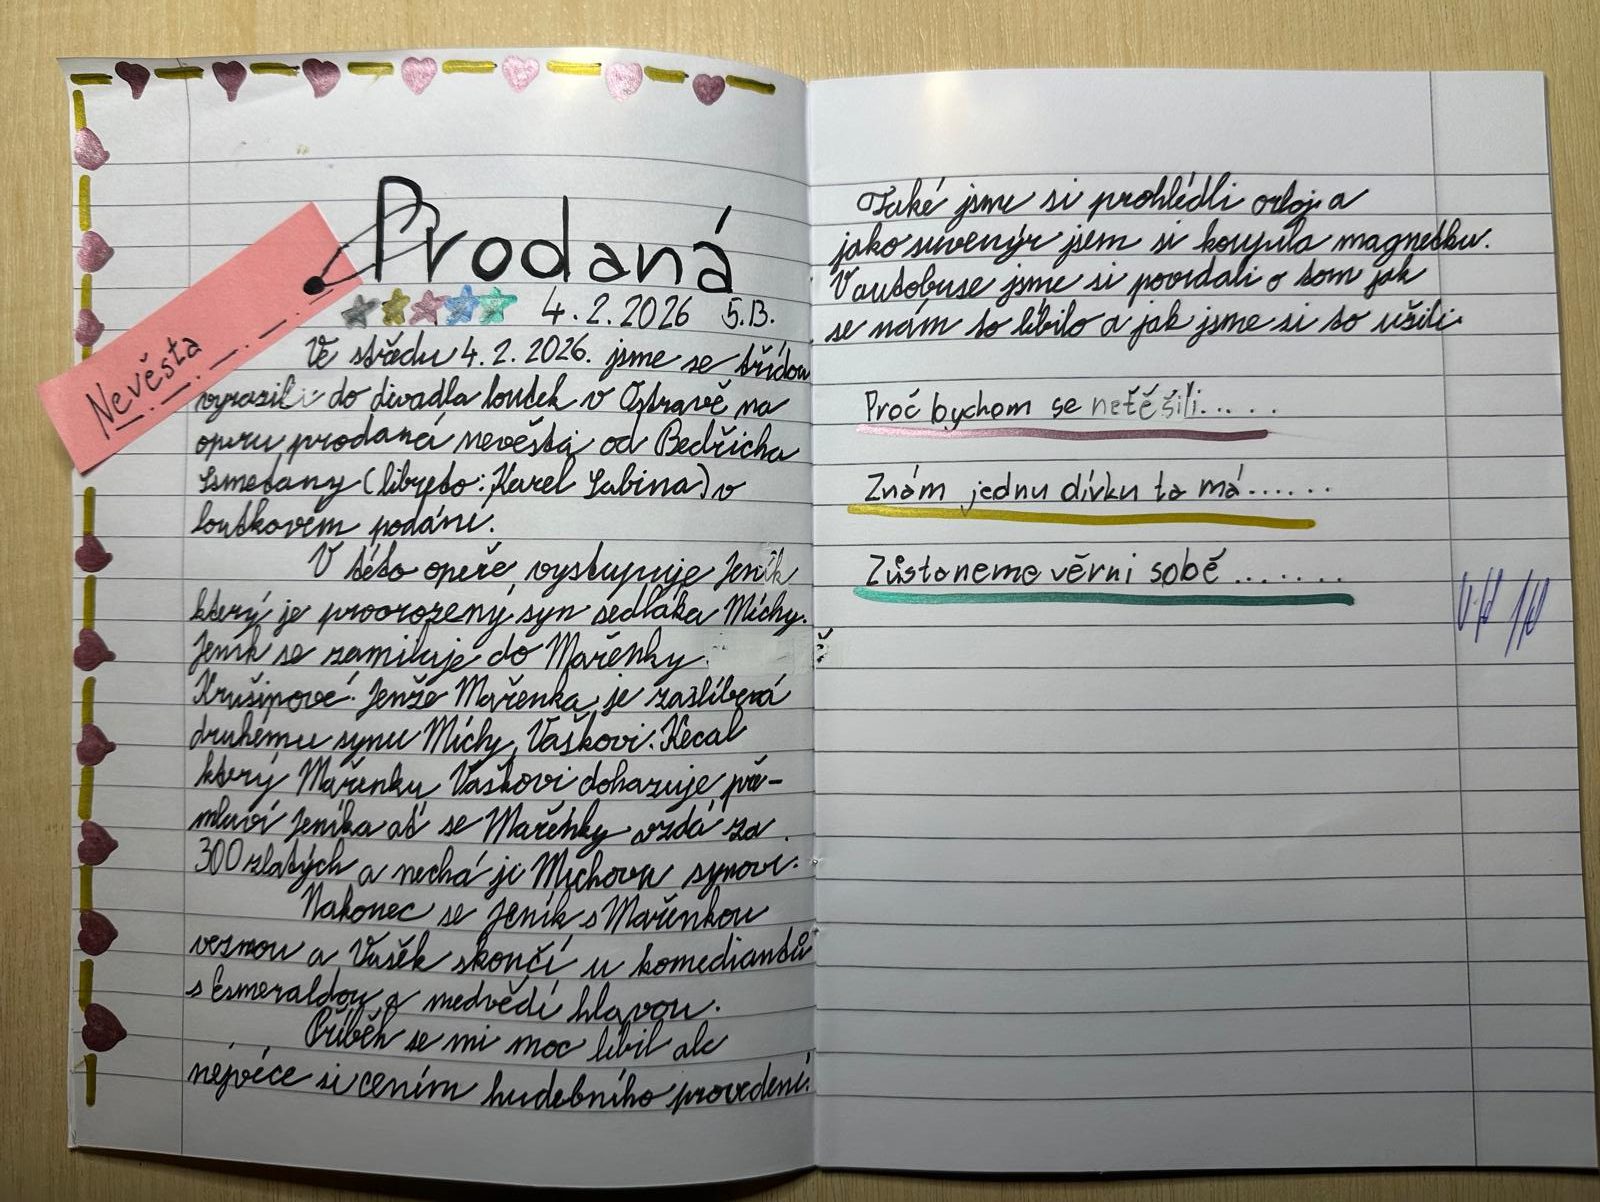 Prodaná
Nevěsta
4.2.2026 5.B.
Ve středu 4.2.2026. jsme se třídou
vyrazili do divadla loutek v Ostravě na
operu prodaná nevěsta od Bedřicha
Smetany (libreto: Karel Sabina) v
loutkovém podání.
V této opeře vystupuje Jeník
který je prvorozený syn sedláka Míchy.
Jeník se zamiluje do Mařenky
Krušinové. Jenže Mařenka je zaslíbená
druhému synu Míchy, Vaškovi. Kecal
který Mařenku Vaškovi dohazuje pře-
mluví Jeníka ať se Mařenky vzdá za
300 zlatých a nechá ji Míchovu synovi.
Nakonec se Jeník s Mařenkou
vezmou a Vašek skončí u komediantů
s Esmeraldou a medvědí hlavou.
Příběh se mi moc líbil ale
nejvíce si cením hudebního provedení.
Také jsme si prohlédli orloj a
jako suvenýr jsem si koupila magnetku.
V autobuse jsme si povídali o tom jak
se nám to líbilo a jak jsme si to užili
Proč bychom se netěšili.....
Znám jednu dívku ta má......
Zůstaneme věrni sobě.......